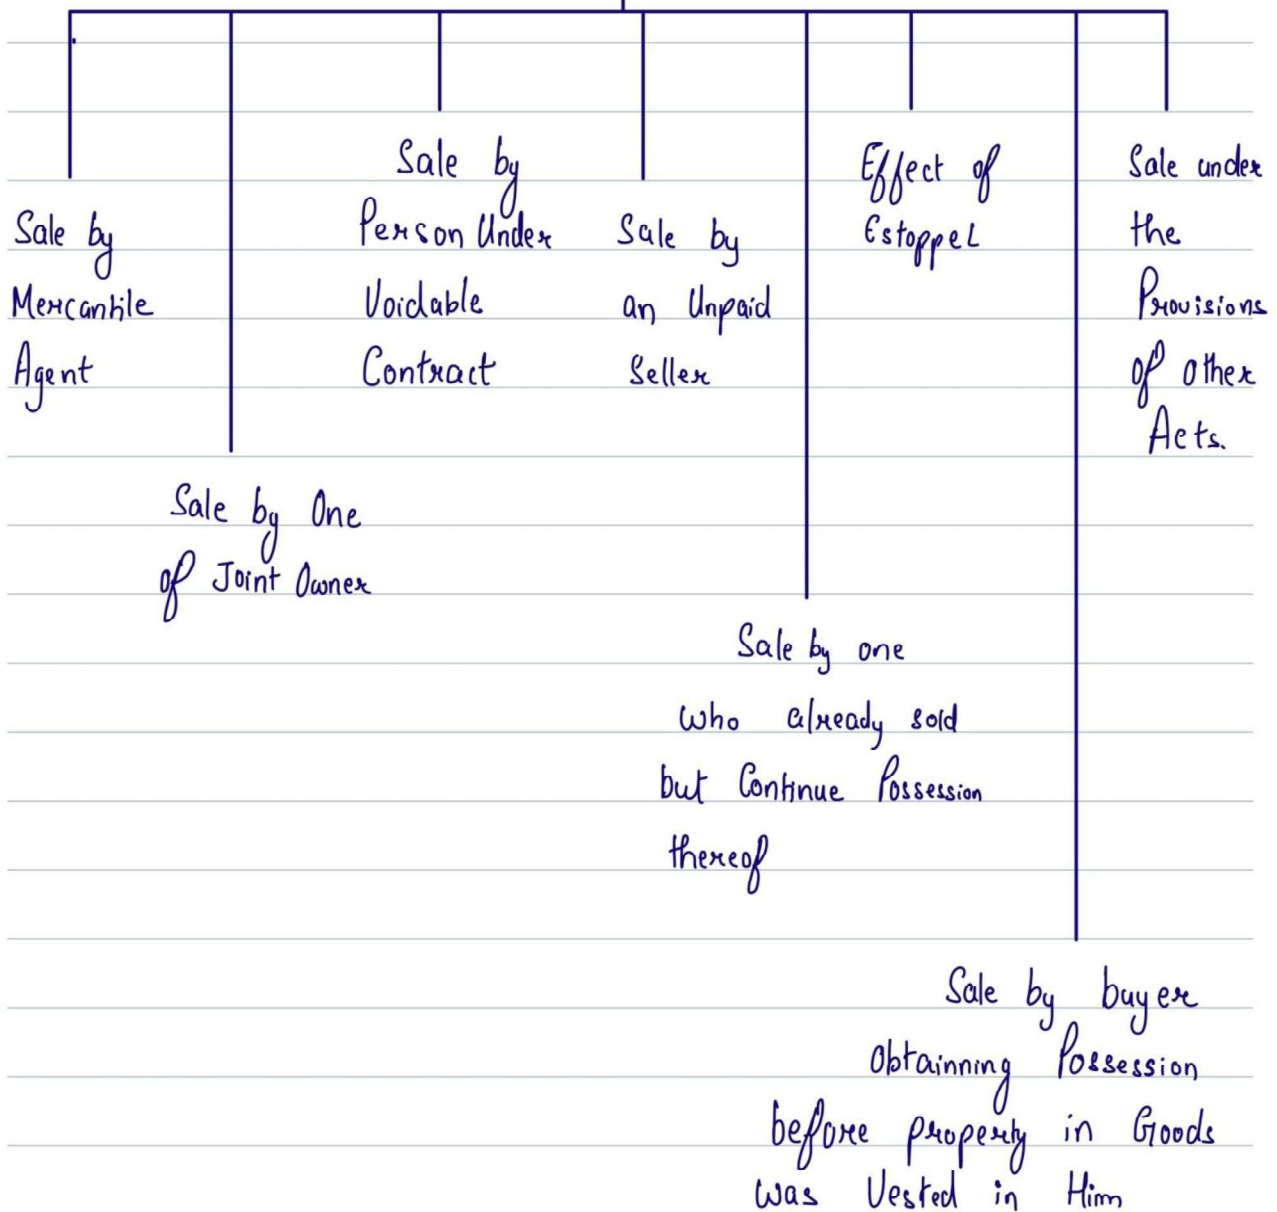 Sale by
Mercantile
Agent
Sale by One
of Joint Owner
Sale by
Person Under
Voidable
Contract
Sale by
an Unpaid
Seller
Sale by one
who already sold
but Continue Possession
thereof
Effect of
Estoppel
Sale by buyer
Obtainning Possession
before property in Goods
was Vested in Him
Sale under
the
Provisions
of other
Acts.